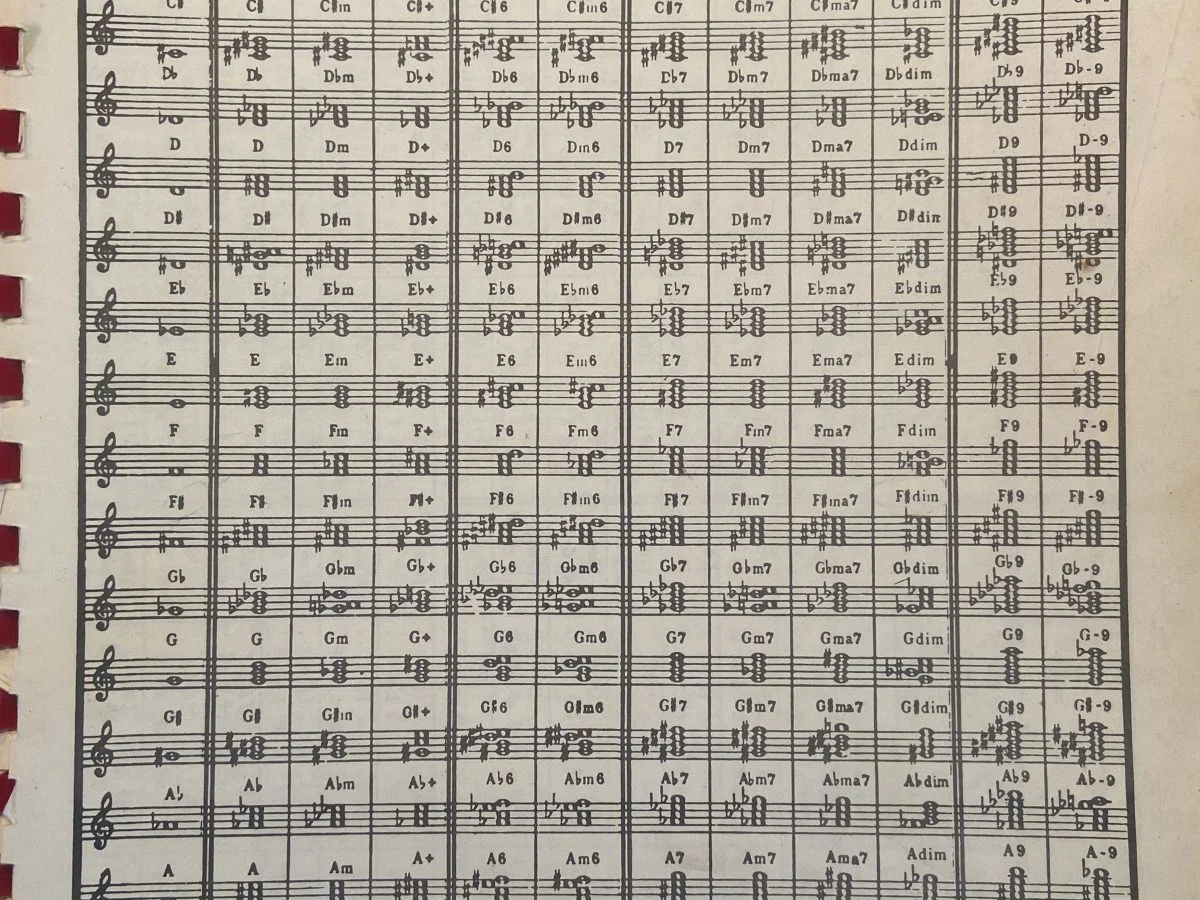 C# C# C#m C#+ C#6 C#m6 C#7 C#m7 C#ma7 C#dim C#9 C#-9
Db Db Dbm Db+ Db6 Dbm6 Db7 Dbm7 Dbma7 Dbdim Db9 Db-9
D D Dm D+ D6 Dm6 D7 Dm7 Dma7 Ddim D9 D-9
D# D# D#m D#+ D#6 D#m6 D#7 D#m7 D#ma7 D#dim D#9 D#-9
Eb Eb Ebm Eb+ Eb6 Ebm6 Eb7 Ebm7 Ebma7 Ebdim Eb9 Eb-9
E E Em E+ E6 Em6 E7 Em7 Ema7 Edim E9 E-9
F F Fm F+ F6 Fm6 F7 Fm7 Fma7 Fdim F9 F-9
F# F# F#m F#+ F#6 F#m6 F#7 F#m7 F#ma7 F#dim F#9 F#-9
Gb Gb Gbm Gb+ Gb6 Gbm6 Gb7 Gbm7 Gbma7 Gbdim Gb9 Gb-9
G G Gm G+ G6 Gm6 G7 Gm7 Gma7 Gdim G9 G-9
G# G# G#m G#+ G#6 G#m6 G#7 G#m7 G#ma7 G#dim G#9 G#-9
Ab Ab Abm Ab+ Ab6 Abm6 Ab7 Abm7 Abma7 Abdim Ab9 Ab-9
A A Am A+ A6 Am6 A7 Am7 Ama7 Adim A9 A-9